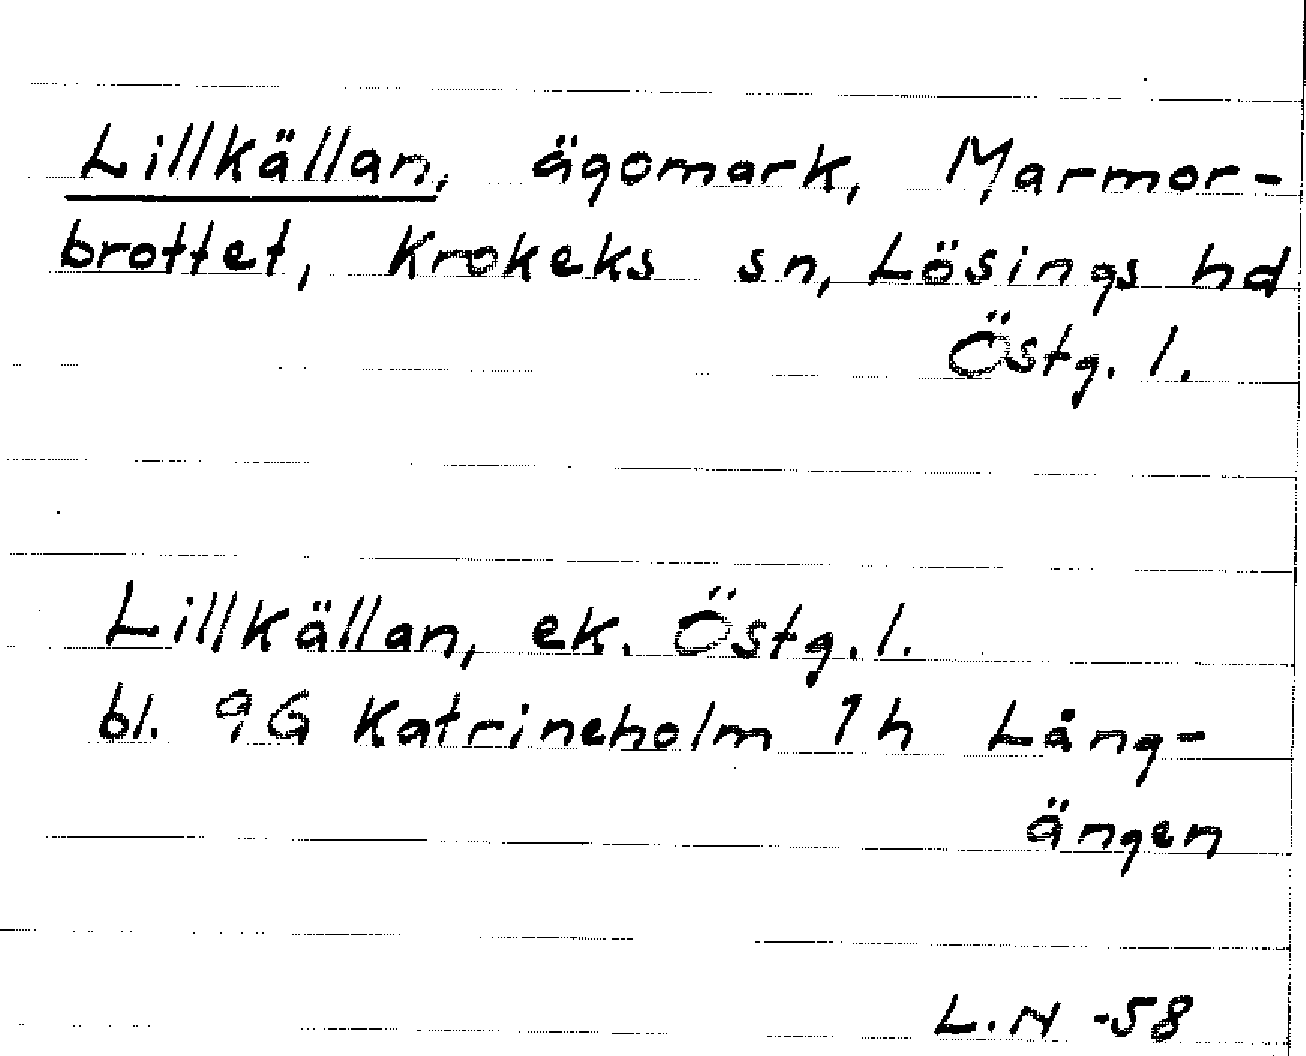 Lillkällan, ägomark, Marmor-
brottet, Krokeks sn, Lösings hd
Östg. l.
Lillkällan, ek. Östg. l.
bl. 9G Katrineholm 1h Lång-
ängen
L.N -58